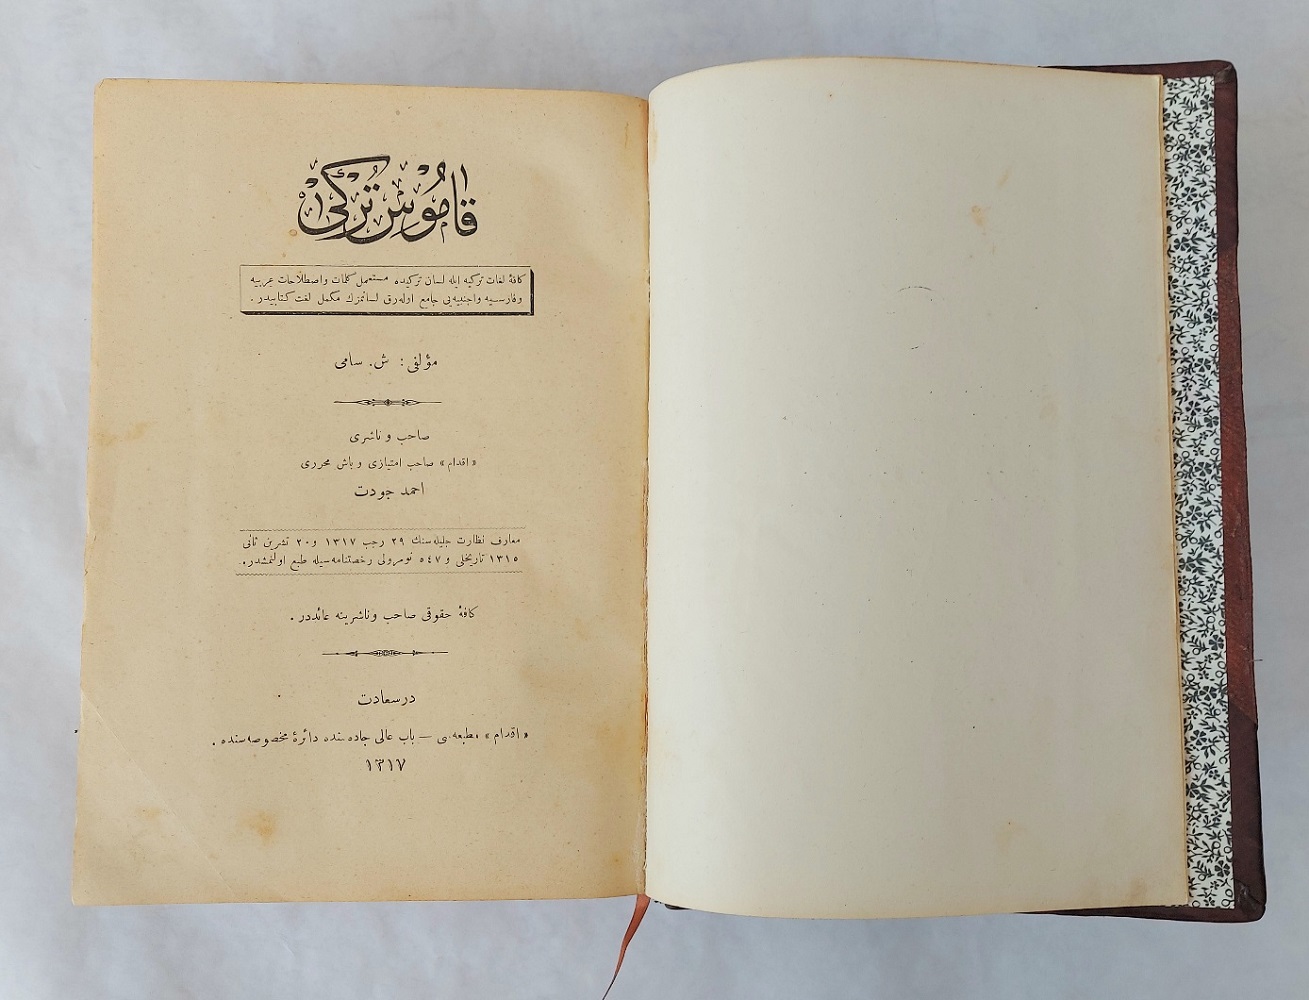 قاموس تركی
كافۀ لغات تركیه ایله لسان تركیده مستعمل كلمات واصطلاحات عربیه
وفارسیه واجنبیه‌یی جامع اوله‌رق لسانمزك مكمل لغت كتابیدر.
مؤلفی: ش. سامی
صاحب و ناشری
«اقدام» صاحب امتیازی و باش محرری
احمد جودت
معارف نظارت جلیله‌سنك ٢٩ رجب ١٣١٧ و ٢٠ تشرین ثانی
١٣١٥ تاریخلی و ٥٤٧ نومرولی رخصتنامه‌سیله طبع اولنمشدر.
كافۀ حقوقی صاحب وناشرینه عائددر.
درسعادت
«اقدام» مطبعه‌سی — باب عالی جاده‌سنده دائرۀ مخصوصه‌سنده.
١٣١٧